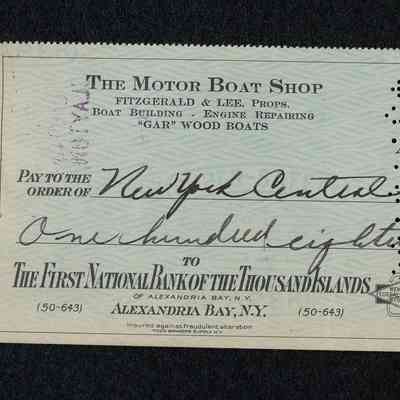 THE MOTOR BOAT SHOP
FITZGERALD & LEE, PROPS.
BOAT BUILDING - ENGINE REPAIRING
"GAR" WOOD BOATS
PAY TO THE
ORDER OF New York Central
One hundred eighty
TO
THE FIRST NATIONAL BANK OF THE THOUSAND ISLANDS
OF ALEXANDRIA BAY, N.Y.
(50-643) ALEXANDRIA BAY, N.Y. (50-643)
Insured against fraudulent alteration